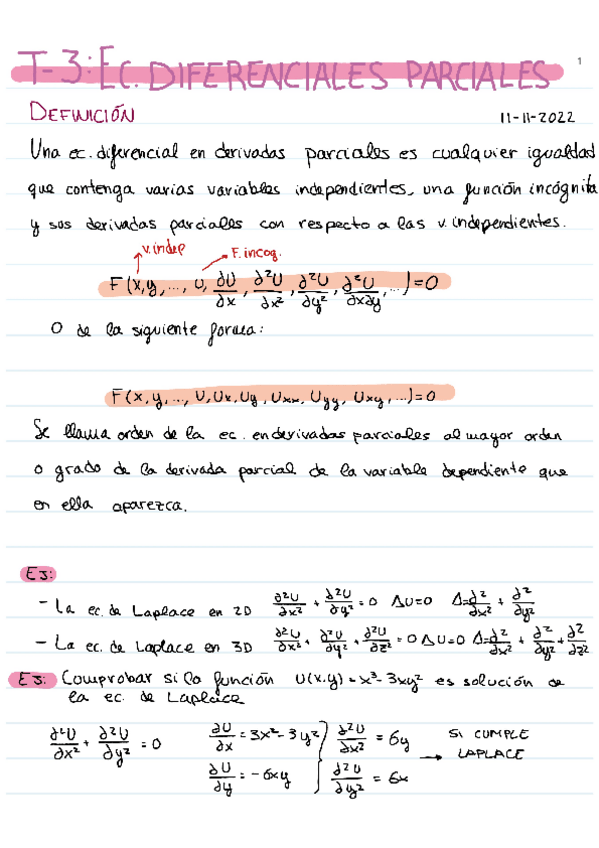 T-3: EC. DIFERENCIALES PARCIALES
1
DEFINICIÓN
11-11-2022
Una ec. diferencial en derivadas parciales es cualquier igualdad
que contenga varias variables independientes, una función incógnita
y sus derivadas parciales con respecto a las v. independientes.
v. indep F. incog.
F(x,y,..., U, ∂U/∂x, ∂²U/∂x², ∂²U/∂y², ∂²U/∂x∂y, ...) = 0
O de la siguiente forma:
F(x,y,..., U, Ux, Uy, Uxx, Uyy, Uxy, ...) = 0
Se llama orden de la ec. en derivadas parciales al mayor orden
o grado de la derivada parcial de la variable dependiente que
en ella aparezca.
EJ:
- La ec. de Laplace en 2D ∂²U/∂x² + ∂²U/∂y² = 0 ΔU=0 Δ=∂²/∂x² + ∂²/∂y²
- La ec. de Laplace en 3D ∂²U/∂x² + ∂²U/∂y² + ∂²U/∂z² = 0 ΔU=0 Δ=∂²/∂x² + ∂²/∂y² + ∂²/∂z²
EJ: Comprobar si la función U(x.y) = x³ - 3xy² es solución de
la ec. de Laplace
∂²U/∂x² + ∂²U/∂y² = 0 ∂U/∂x = 3x² - 3y² } ∂²U/∂x² = 6y SI CUMPLE
∂U/∂y = -6xy } ∂²U/∂y² = 6x → LAPLACE